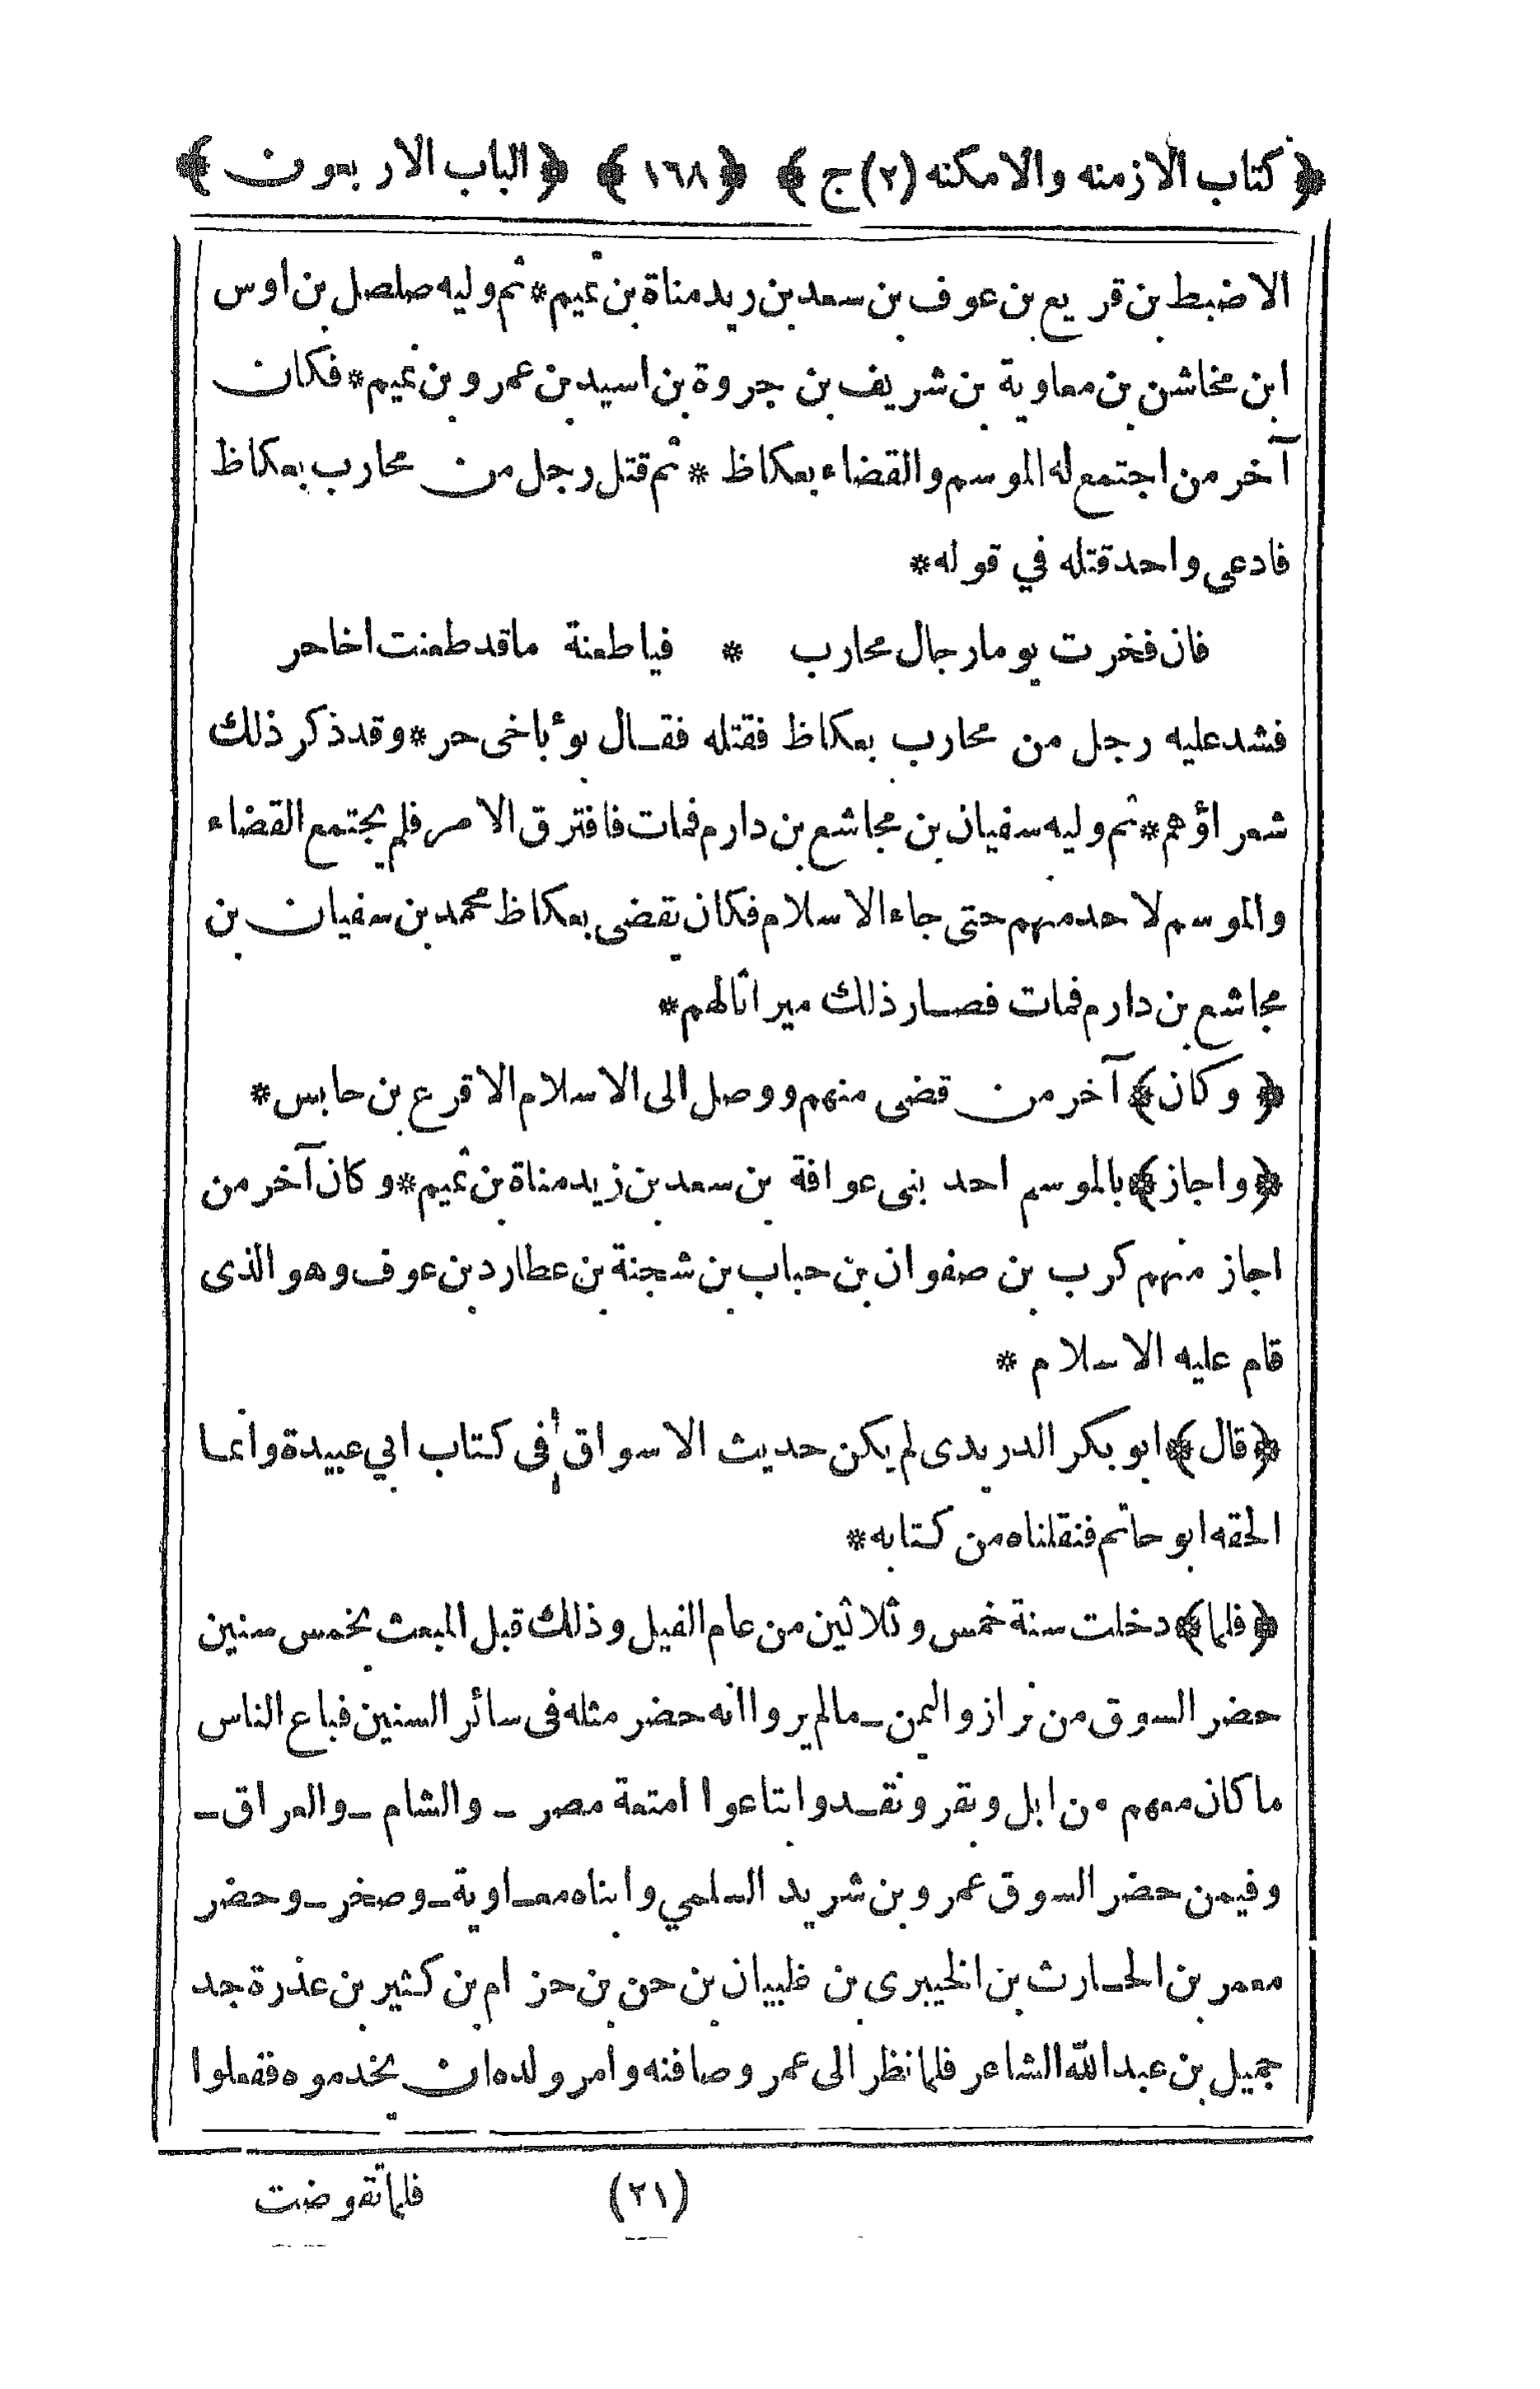 ﴿ كتاب الازمنه والامكنه (٢) ج ﴾ ﴿ ١٦٨ ﴾ ﴿ الباب الاربعون ﴾
الاضبط بن قريع بن عوف بن سعد بن زيد مناة بن تميم * ثم وليه صلصل بن اوس
ابن مخاشن بن معاوية بن شريف بن جروة بن اسيد بن عمرو بن تميم * فكان
آخر من اجتمع له الموسم والقضاء بعكاظ * ثم قتل رجل من محارب بعكاظ
فادعى واحد قتله في قوله *
فان فخرت يوما رجال محارب * فياطعنة ماقد طعنت اخاحر
فشد عليه رجل من محارب بعكاظ فقتله فقال بؤباخى حر * وقد ذكر ذلك
شعراؤهم * ثم وليه سفيان بن مجاشع بن دارم فمات فافترق الامر فلم يجتمع القضاء
والموسم لاحد منهم حتى جاء الاسلام فكان يقضى بعكاظ محمد بن سفيان بن
مجاشع بن دارم فمات فصار ذلك ميراثالهم *
﴿ وكان ﴾ آخر من قضى منهم ووصل الى الاسلام الاقرع بن حابس *
﴿ واجاز ﴾ بالموسم احد بنى عوافة بن سعد بن زيد مناة بن تميم * وكان آخر من
اجاز منهم كرب بن صفوان بن حباب بن شجنة بن عطارد بن عوف وهو الذى
قام عليه الاسلام *
﴿ قال ﴾ ابو بكر الدريدى لم يكن حديث الاسواق فى كتاب ابي عبيدة وانما
الحقه ابو حاتم فنقلناه من كتابه *
﴿ فلما ﴾ دخلت سنة خمس وثلاثين من عام الفيل وذلك قبل المبعث بخمس سنين
حضر السوق من نزار واليمن ـ مالم يروا انه حضر مثله فى سائر السنين فباع الناس
ماكان معهم من ابل وبقر ونقد وابتاعوا امتعة مصر ـ والشام ـ والعراق ـ
وفيمن حضر السوق عمرو بن شريد السلمي وابناه معاوية ـ وصخر ـ وحضر
معمر بن الحارث بن الخيبرى بن ظبيان بن حن بن حزام بن كثير بن عذرة جد
جميل بن عبدالله الشاعر فلما نظر الى عمرو صافنه وامر ولده ان يخدموه ففعلوا
(٢١) فلما تقوضت